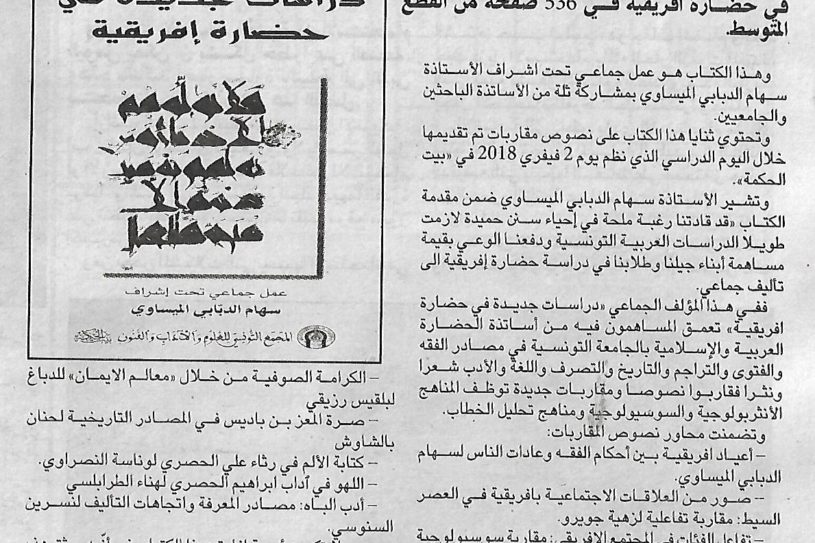 في حضارة افريقية فـي 536 صفحة من القطع
المتوسط.
وهـذا الكتاب هـو عمل جماعي تحت اشراف الأستاذة
سـهام الدبابي الميساوي بمشاركة ثلة من الأساتذة الباحثين
والجامعيين.
وتحتوي ثنايا هذا الكتاب على نصوص مقاربات تم تقديمها
خلال اليوم الدراسي الذي نظم يوم 2 فيفري 2018 في «بيت
الحكمة».
وتشير الأستاذة سـهام الدبابي الميساوي ضمن مقدمة
الكتاب «قد قادتنا رغبة ملحة في إحياء سنن حميدة لازمت
طويلا الدراسات العربية التونسية ودفعنا الوعي بقيمة
مساهمة أبناء جيلنا وطلابنا في دراسة حضارة إفريقية الى
تأليف جماعي.
ففي هـذا المؤلف الجماعي «دراسات جديدة في حضارة
افريقيـة» تعمق المساهمون فيه مـن أساتذة الحضارة
العربية والإسلامية بالجامعة التونسية في مصادر الفقه
والفتوى والتراجم والتاريخ والتصرف واللغة والأدب شعرا
ونثرا فقاربوا نصوصا ومقاربات جديدة توظف المناهج
الأنثربولوجية والسوسيولوجية ومناهج تحليل الخطاب.
وتضمنت محاور نصوص المقاربات:
– أعيـاد افريقية بين أحكام الفقه وعادات الناس لسهام
الدبابي الميساوي.
– صـور مـن العلاقات الاجتماعية بافريقية في العصر
السيط: مقاربة تفاعلية لزهية جويرو.
– تفاعل الفئات في المجتمع الافريقي: مقاربة سوسيولوجية
دراسات جديدة في
حضارة إفريقية
عمل جماعي تحت إشراف
سهام الدبّابي الميساوي
المجمع التونسي للعلوم والآداب والفنون بيت الحكمة
– الكرامة الصوفية مـن خـلال «معالـم الايمان» للدباغ
لبلقيس رزيقي
– صـرة المعز بن باديس في المصادر التاريخية لحنان
بالشاوش
– كتابة الألم في رثاء علي الحصري لوناسة النصراوي.
– اللهو في آداب ابراهيم الحصري لهناء الطرابلسي
– أدب الباه: مصادر المعرفة واتجاهات التأليف لنسرين
السنوسي.